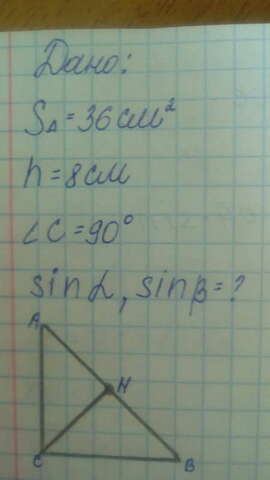 Дано:
S△=36см²
h=8см
∠C=90°
sinα, sinβ=?
A
H
C
B